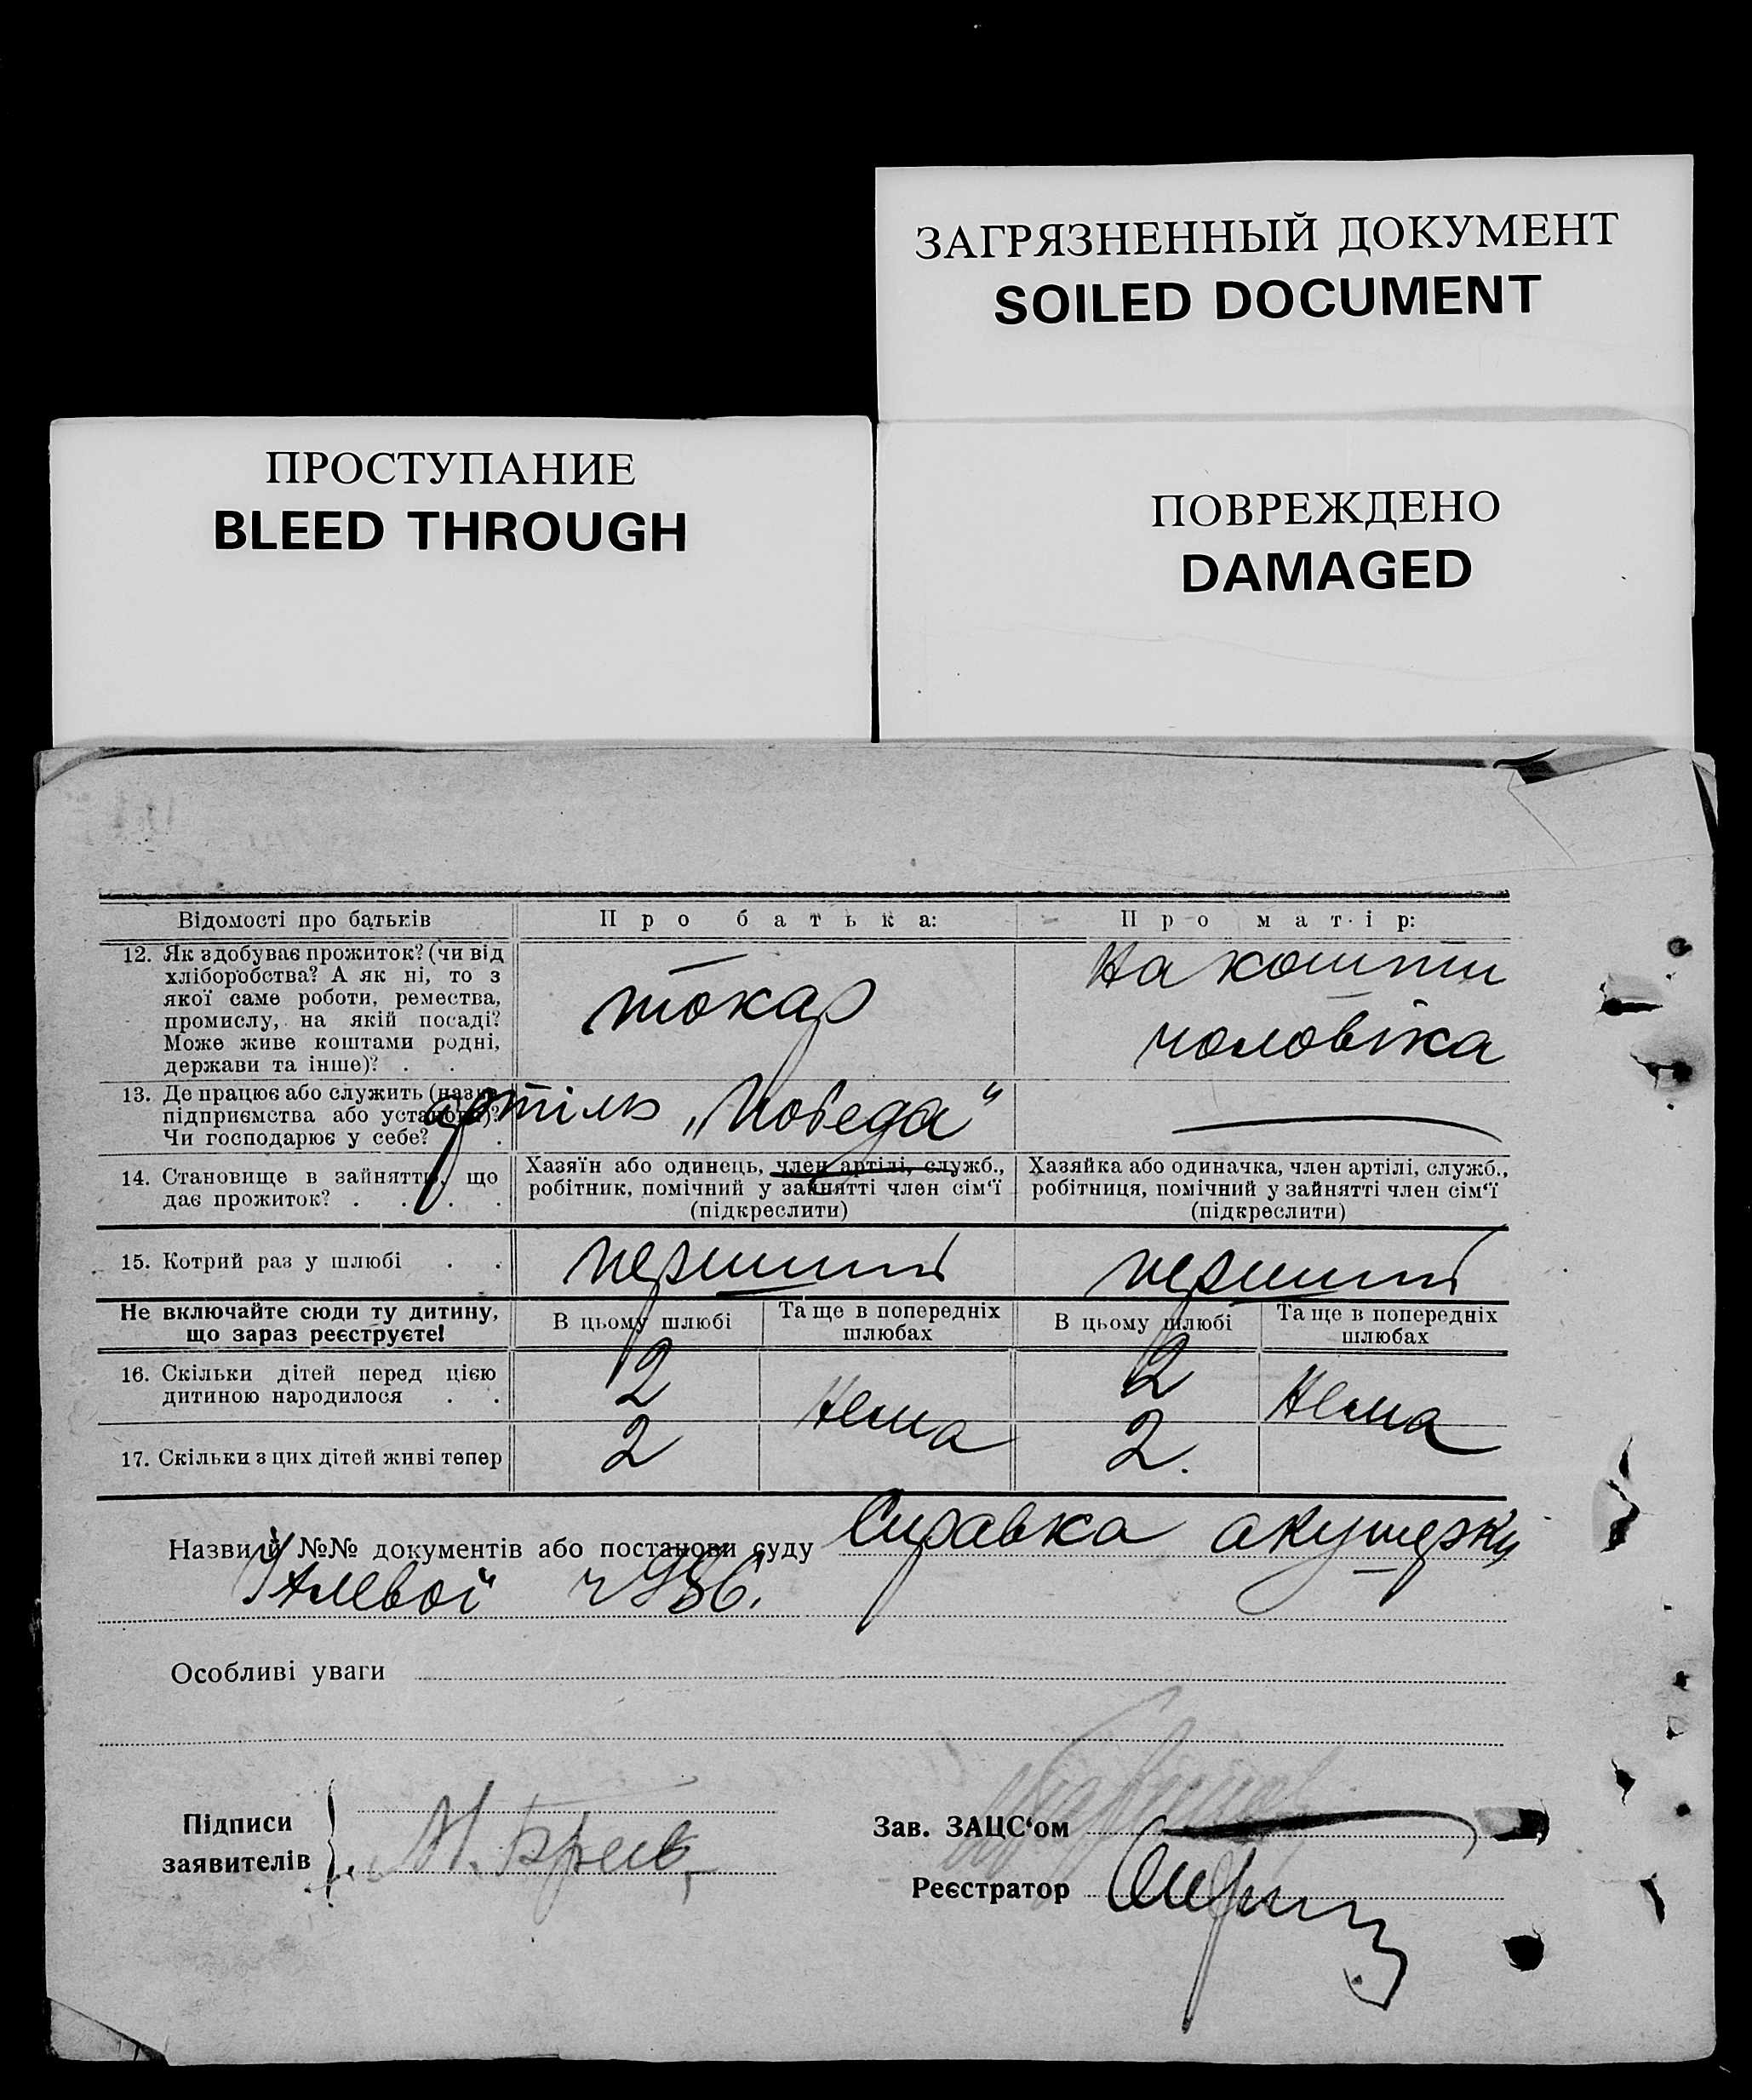 ЗАГРЯЗНЕННЫЙ ДОКУМЕНТ
SOILED DOCUMENT
ПРОСТУПАНИЕ
BLEED THROUGH
ПОВРЕЖДЕНО
DAMAGED
Відомості про батьків
Про батька:
Про матір:
12. Як здобуває прожиток? (чи від
хліборобства? А як ні, то з
якої саме роботи, ремества,
промислу, на якій посаді?
Може живе коштами родні,
держави та інше)? . .
токар
на кошти
чоловіка
13. Де працює або служить (назва
підприємства або установи)?
Чи господарює у себе? .
артіль „Победа“
14. Становище в зайнятті, що
дає прожиток? . . . .
Хазяїн або одинець, член артілі, служб.,
робітник, помічний у зайнятті член сім‘ї
(підкреслити)
Хазяйка або одиначка, член артілі, служб.,
робітниця, помічний у зайнятті член сім‘ї
(підкреслити)
15. Котрий раз у шлюбі . .
перший
перший
Не включайте сюди ту дитину,
що зараз реєструєте!
В цьому шлюбі
Та ще в попередніх
шлюбах
В цьому шлюбі
Та ще в попередніх
шлюбах
16. Скільки дітей перед цією
дитиною народилося . .
2
Нема
2
Нема
17. Скільки з цих дітей живі тепер
2
2.
Назви й №№ документів або постанови суду Справка акушерки
Особливі уваги
Підписи
заявителів
Зав. ЗАЦС‘ом
Реєстратор